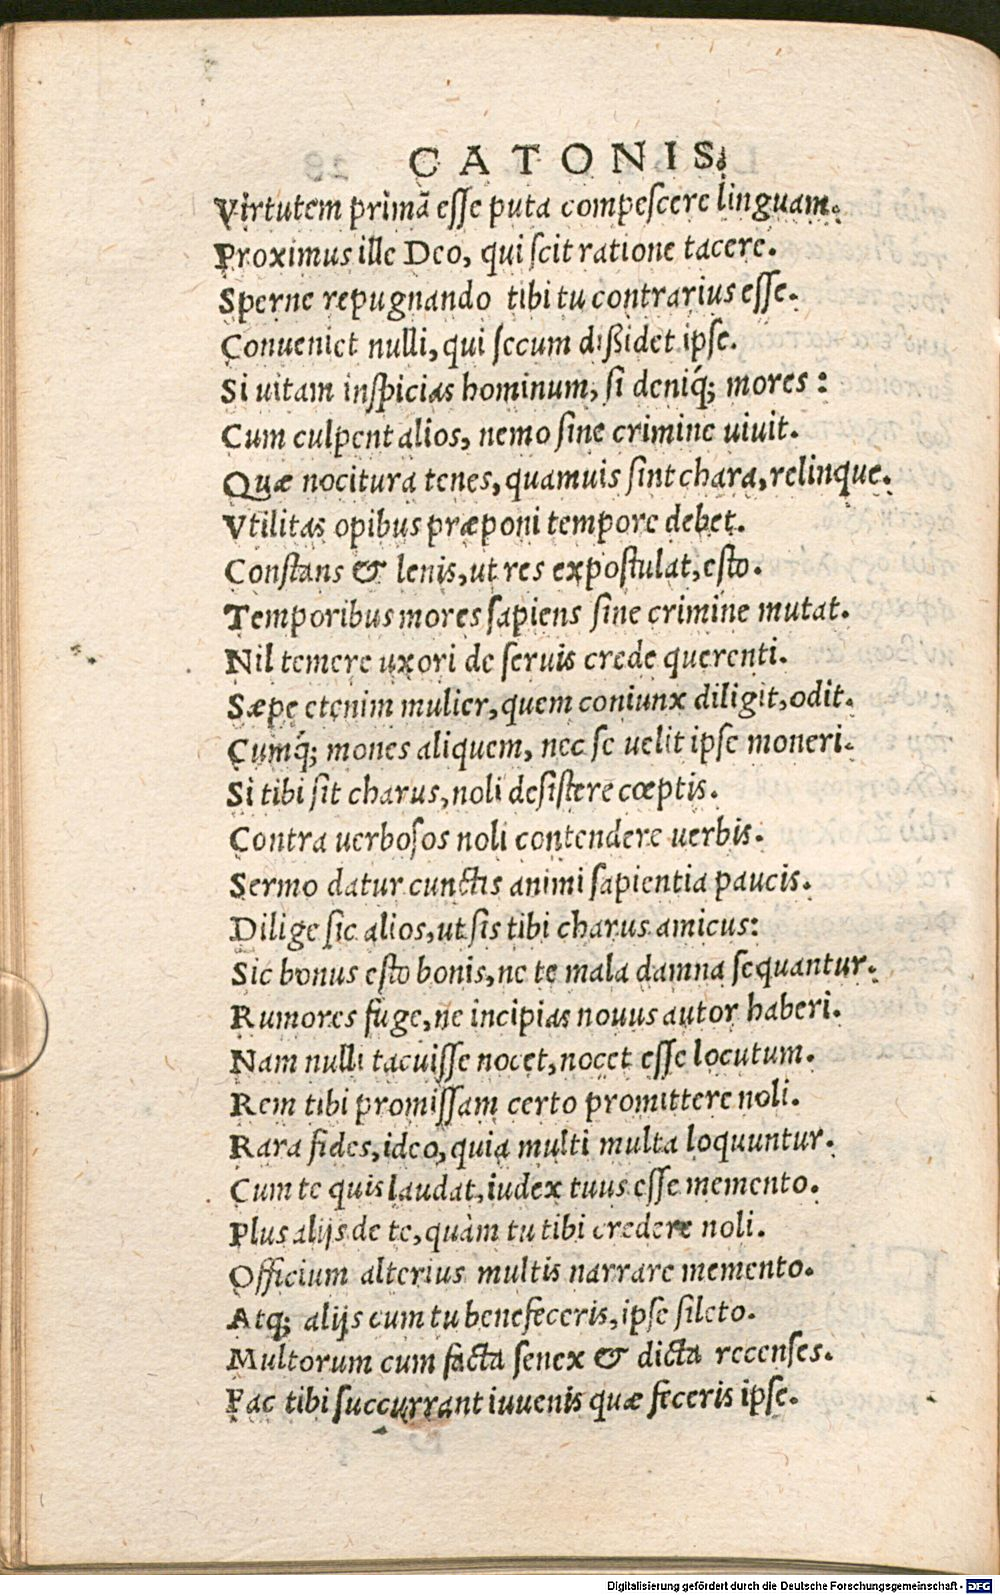 CATONIS.
Virtutem primã esse puta compescere linguam.
Proximus ille Deo, qui scit ratione tacere.
Sperne repugnando tibi tu contrarius esse.
Conueniet nulli, qui secum dißidet ipse.
Si uitam inspicias hominum, si deniq́; mores:
Cum culpent alios, nemo sine crimine uiuit.
Quæ nocitura tenes, quamuis sint chara, relinque.
Vtilitas opibus præponi tempore debet.
Constans & lenis, ut res expostulat, esto.
Temporibus mores sapiens sine crimine mutat.
Nil temere uxori de seruis crede querenti.
Sæpe etenim mulier, quem coniunx diligit, odit.
Cumq́; mones aliquem, nec se uelit ipse moneri.
Si tibi sit charus, noli desistere cœptis.
Contra uerbosos noli contendere uerbis.
Sermo datur cunctis animi sapientia paucis.
Dilige sic alios, ut sis tibi charus amicus:
Sic bonus esto bonis, ne te mala damna sequantur.
Rumores fuge, ne incipias nouus autor haberi.
Nam nulli tacuisse nocet, nocet esse locutum.
Rem tibi promissam certo promittere noli.
Rara fides, ideo, quia multi multa loquuntur.
Cum te quis laudat, iudex tuus esse memento.
Plus alijs de te, quàm tu tibi credere noli.
Officium alterius multis narrare memento.
Atq; alijs cum tu benefeceris, ipse sileto.
Multorum cum facta senex & dicta recenses.
Fac tibi succurrant iuuenis quæ feceris ipse.
Digitalisierung gefördert durch die Deutsche Forschungsgemeinschaft - DFG